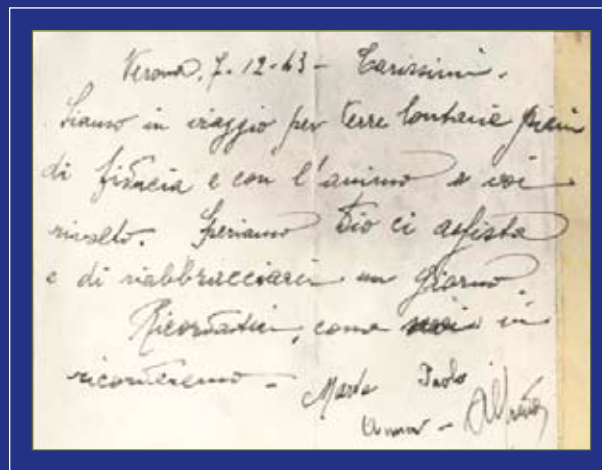 Verona, 7-12-43 - Carissimi.
Siamo in viaggio per terre lontane pieni
di fiducia e con l'animo a voi
rivolto. Speriamo Dio ci assista
e di riabbracciarci un giorno.
Ricordatici, come noi vi
ricorderemo -
Paolo